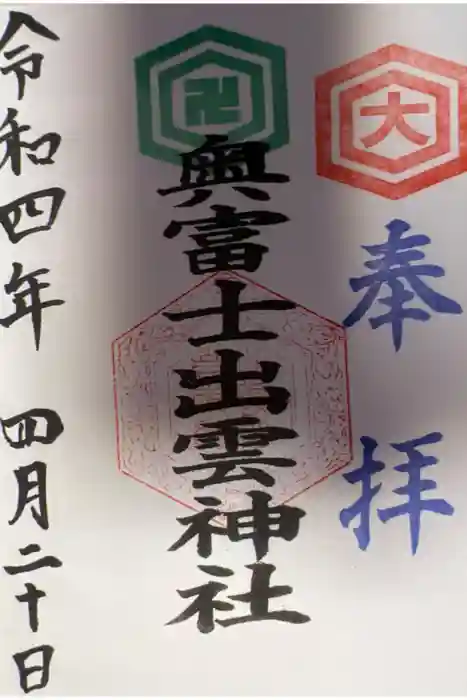 大
奉拝
卍
奥富士出雲神社
令和四年 四月二十日